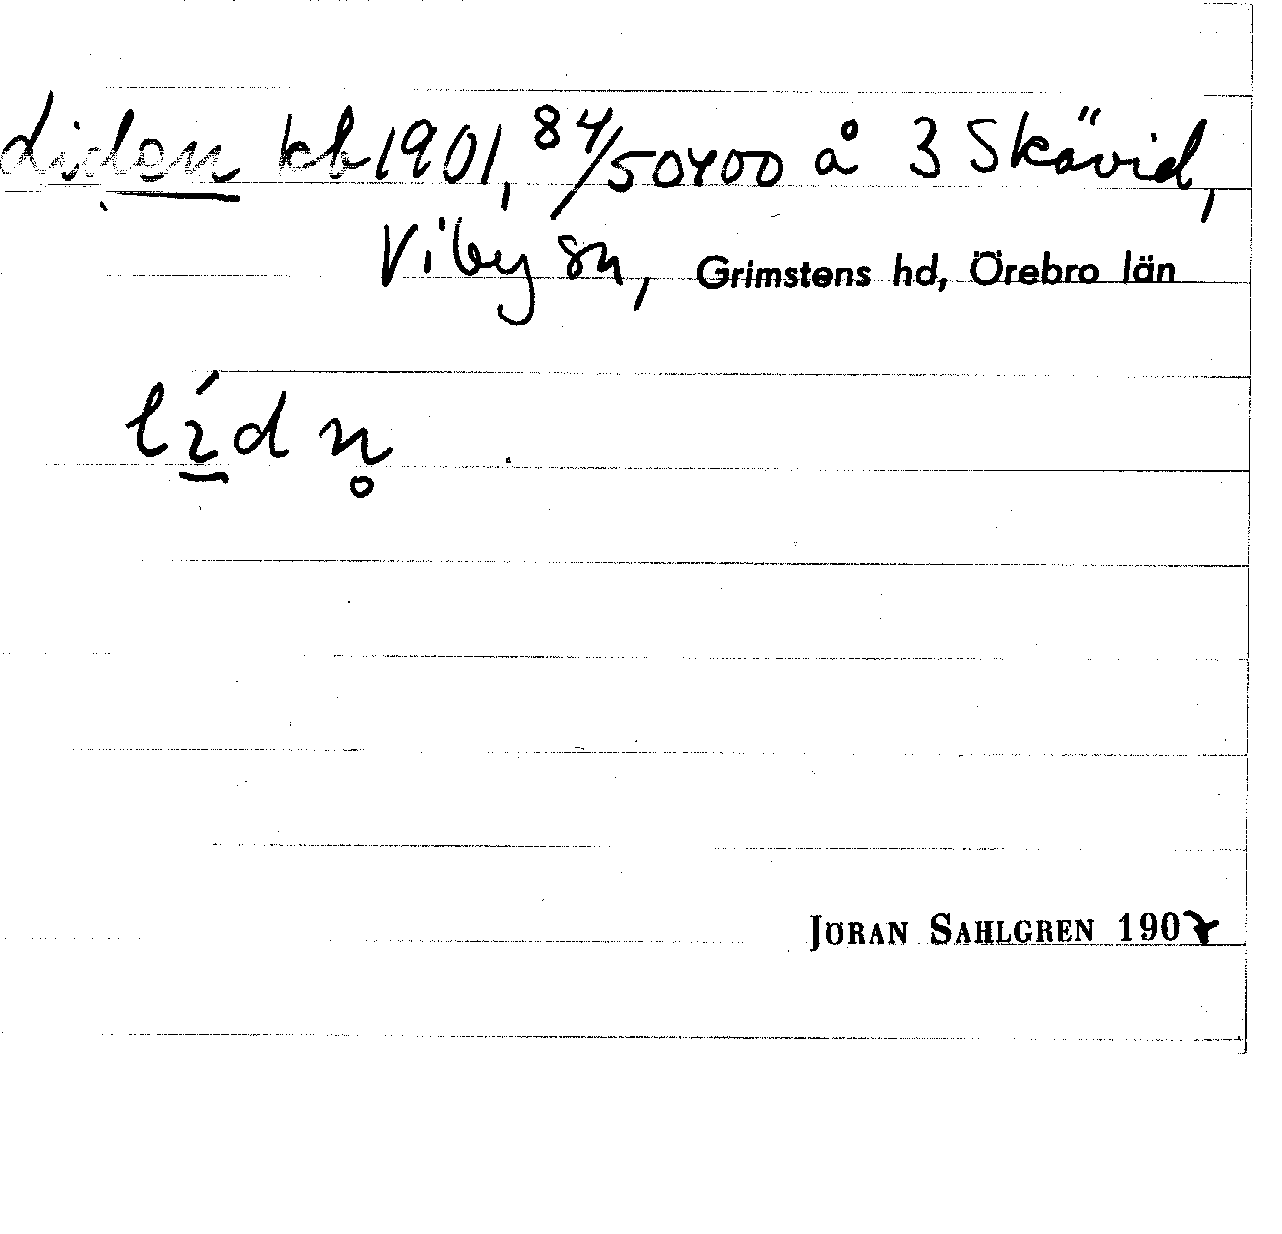 Liden kb 1901, 84/50400 å 3 Skävid,
Viby sn, Grimstens hd, Örebro län
lı̱́dn̥
JÖRAN SAHLGREN 1907